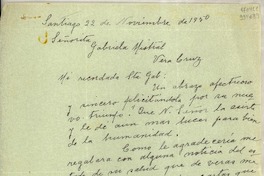 Santiago 22 de Noviembre de 1950
Señorita
Gabriela Mistral
Vera Cruz
Mi recordada Sta Gab:
Un abrazo afectuoso
y sincero felicitándola por su nue
vo triunfo! Que N. Señor la asista
y le de aun mas luces para bien
de la humanidad.
Como le agradecería me
regalara con alguna noticia del es
tado de su salud que de veras me